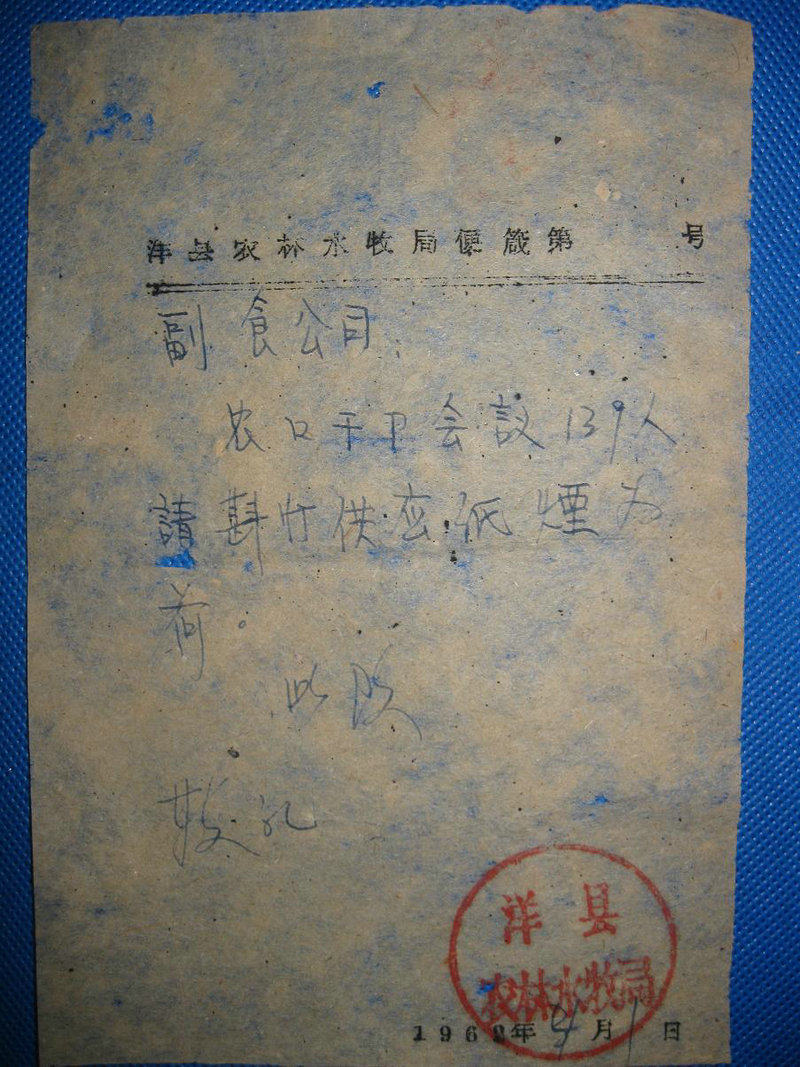 洋县农林水牧局便箋第 号
副食公司:
农口干卩会议139人
請斟酌供应纸煙为
荷。
此致
敬礼
洋县
农林水牧局
1962年4月1日